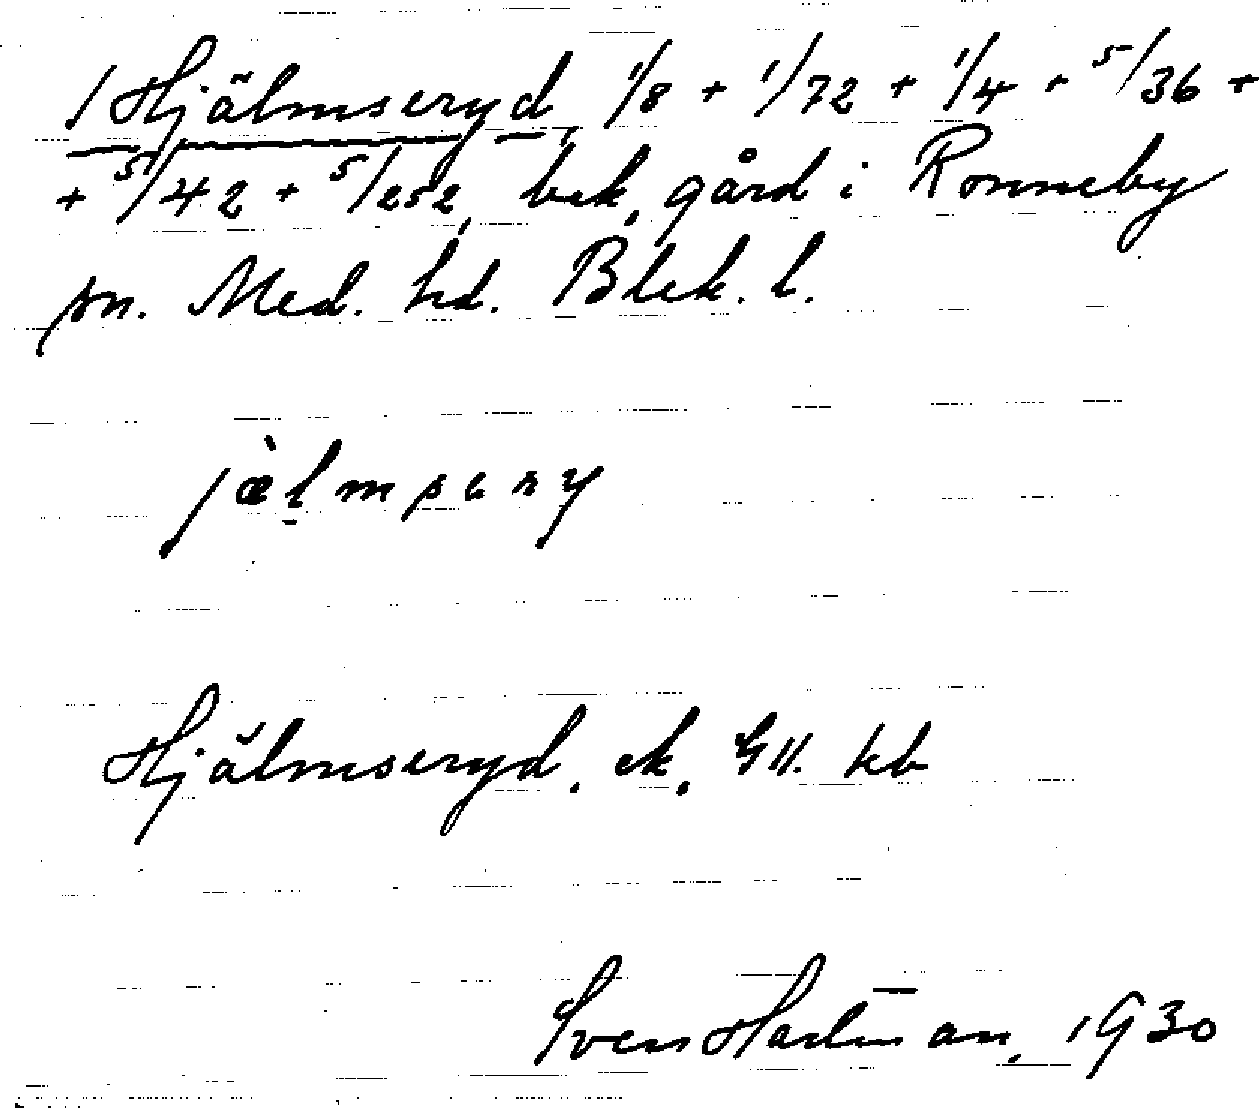 1 Hjälmseryd, 1/8 + 1/72 + 1/4 + 5/36 +
+ 5/42 + 5/252, bek. gård i Ronneby
sn. Med. hd. Blek. l.
jæ̀l̠msery
Hjälmseryd. ek. GII. kb
Sven Hartman, 1930